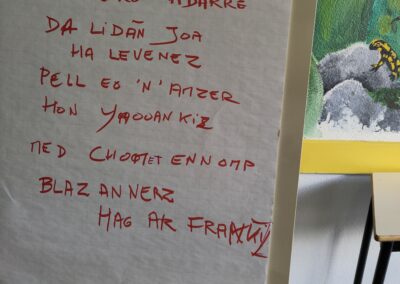 ADARRE
DA LIDAÑ JOA
HA LEVENEZ
PELL EO 'N' AMZER
HON YAOUANKIZ
MED CHOMET ENNOMP
BLAZ AN NERZ
HAG AR FRANKIZ